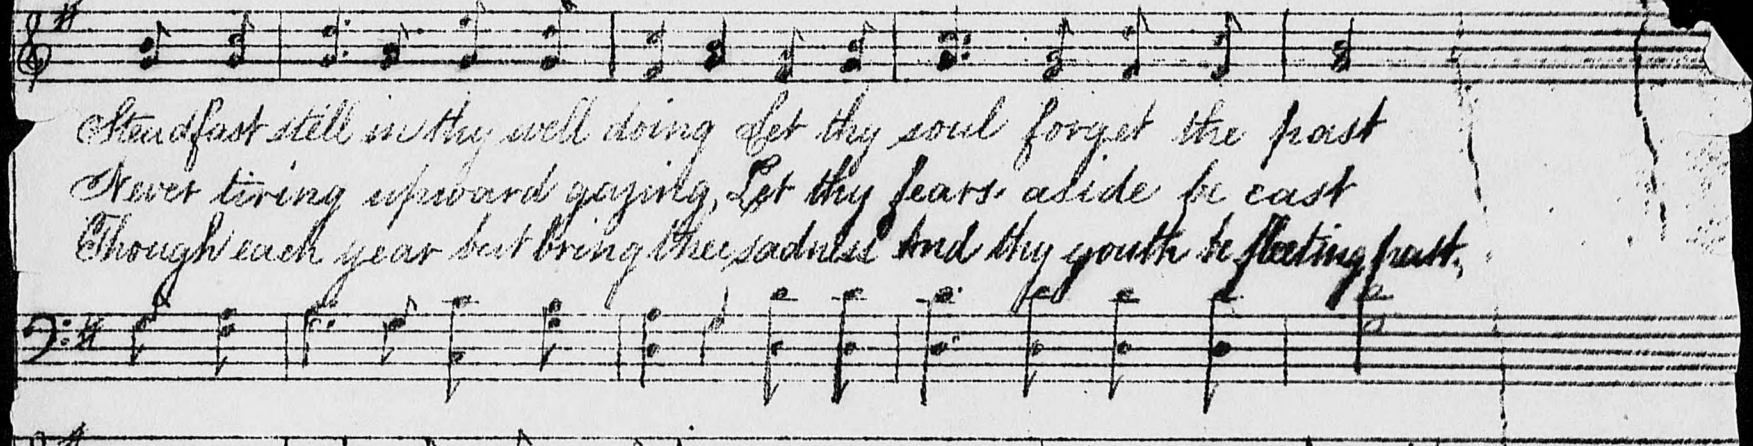 Steadfast still in thy well doing Let thy soul forget the past
Never tiring upward gazing, Let thy fears aside be cast
Though each year but bring thee sadness And thy youth be fleeting fast.